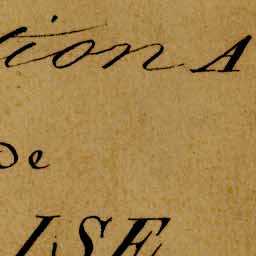 tion A
De
ISE